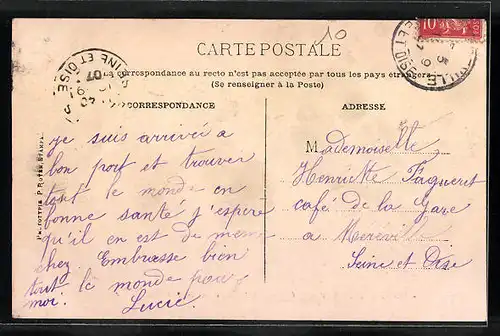 10
CARTE POSTALE
La correspondance au recto n'est pas acceptée par tous les pays étrangers
(Se renseigner à la Poste)
CORRESPONDANCE
ADRESSE
je suis arrivée a
bon port et trouver
tout le monde en
bonne santé j'espere
qu'il en est de meme
chez. Embrasse bien
tout le monde pour
moi. Lucie.
Mademoiselle
Henriette Fagueret
café de la Gare
a Mereville
Seine et Oise
SEINE ET OISE
07
10